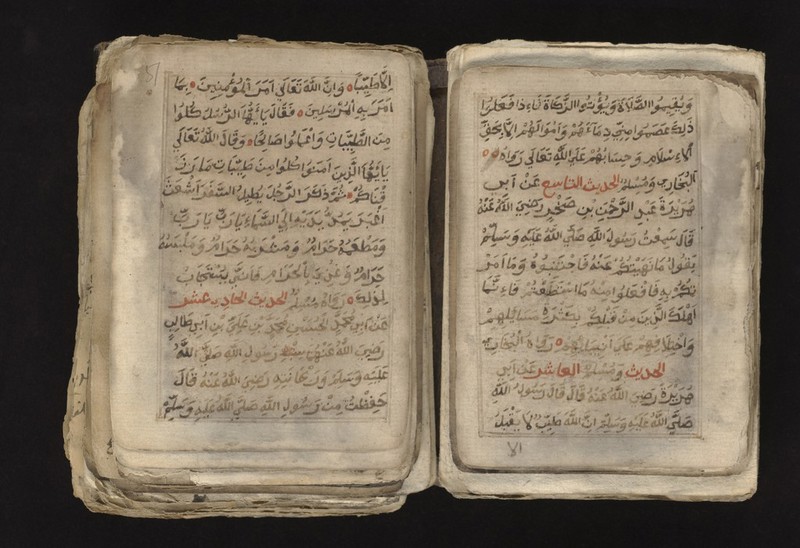 وَيُقِيمُوا الصَّلَاةَ وَيُؤْتُوا الزَّكَاةَ فَإِذَا فَعَلُوا
ذَلِكَ عَصَمُوا مِنِّي دِمَآءَهُمْ وَأَمْوَالَهُمْ إِلَّا بِحَقِّ
الْإِسْلَامِ وَحِسَابُهُمْ عَلَى اللَّهِ تَعَالَى رَوَاهُ
الْبُخَارِي وَمُسْلِمٌ الحديث التاسع عَنْ أَبِي
هُرَيْرَةَ عَبْدِ الرَّحْمَنِ بْنِ صَخْرٍ رَضِيَ اللَّهُ عَنْهُ
قَالَ سَمِعْتُ رَسُولَ اللَّهِ صَلَّى اللَّهُ عَلَيْهِ وَسَلَّمَ
يَقُولُ مَا نَهَيْتُكُمْ عَنْهُ فَاجْتَنِبُوهُ وَمَا أَمَرْ
تُكُمْ بِهِ فَافْعَلُوا مِنْهُ مَا اسْتَطَعْتُمْ فَإِنَّمَا
أَهْلَكَ الَّذِينَ مِنْ قَبْلِكُمْ بِكَثْرَةِ مَسَائِلِهِمْ
وَاخْتِلَافِهِمْ عَلَى أَنْبِيَائِهِمْ رَوَاهُ الْبُخَارِي
الحديث وَمُسْلِمٌ العاشر عَنْ أَبِي
هُرَيْرَةَ رَضِيَ اللَّهُ عَنْهُ قَالَ قَالَ رَسُولُ اللَّهِ
صَلَّى اللَّهُ عَلَيْهِ وَسَلَّمَ إِنَّ اللَّهَ طَيِّبٌ لَا يَقْبَلُ
الا
إِلَّا طَيِّبًا وَإِنَّ اللَّهَ تَعَالَى أَمَرَ الْمُؤْمِنِينَ بِمَا
أَمَرَ بِهِ الْمُرْسَلِينَ فَقَالَ يَاأَيُّهَا الرُّسُلُ كُلُوا
مِنَ الطَّيِّبَاتِ وَاعْمَلُوا صَالِحًا وَقَالَ اللَّهُ تَعَالَى
يَاأَيُّهَا الَّذِينَ آمَنُوا كُلُوا مِنْ طَيِّبَاتِ مَا رَزَ
قْنَاكُمْ ثُمَّ ذَكَرَ الرَّجُلَ يُطِيلُ السَّفَرَ أَشْعَثَ
أَغْبَرَ يَمُدُّ يَدَيْهِ إِلَى السَّمَاءِ يَارَبِّ يَارَبِّ
وَمَطْعَمُهُ حَرَامٌ وَمَشْرَبُهُ حَرَامٌ وَمَلْبَسُهُ
حَرَامٌ وَغُذِيَ بِالْحَرَامِ فَأَنَّى يُسْتَجَابُ
لِذَلِكَ رَوَاهُ مُسْلِمٌ الحديث الحادي عشر
عَنْ أَبِي مُحَمَّدٍ الْحَسَنِ بْنِ عَلِيِّ بْنِ أَبِي طَالِبٍ
رَضِيَ اللَّهُ عَنْهُمَا سِبْطِ رَسُولِ اللَّهِ صَلَّى اللَّهُ
عَلَيْهِ وَسَلَّمَ وَرَيْحَانَتِهِ رَضِيَ اللَّهُ عَنْهُ قَالَ
حَفِظْتُ مِنْ رَسُولِ اللَّهِ صَلَّى اللَّهُ عَلَيْهِ وَسَلَّمَ